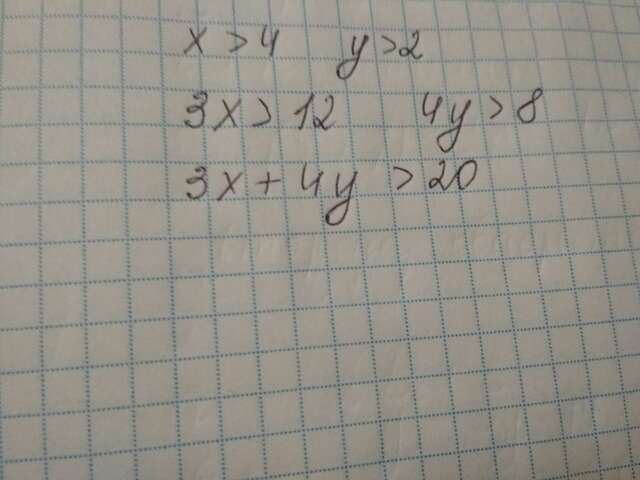 x > 4 y > 2
3x > 12 4y > 8
3x + 4y > 20